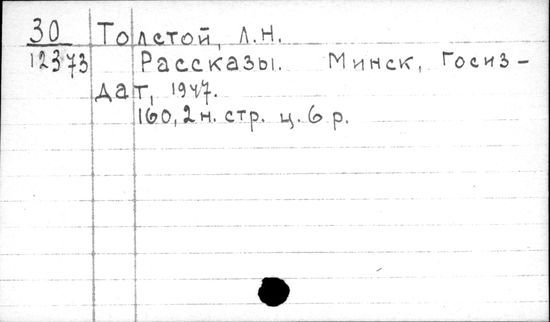 30 Толстой, Л.Н.
12373 Рассказы. Минск, Госиз-
дат, 1947.
160, 2 н. стр. ц. 6 р.